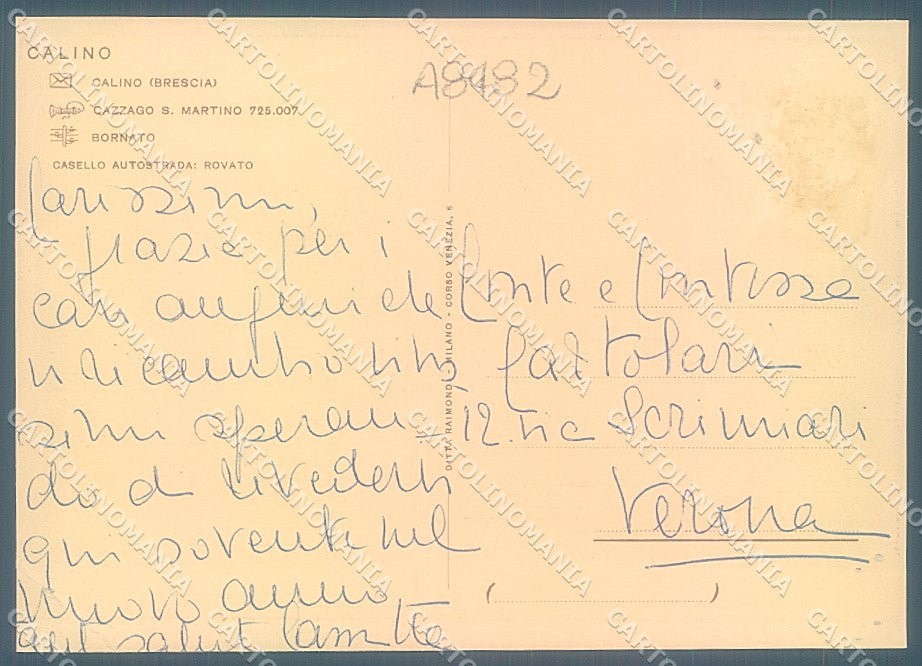 CALINO
CALINO (BRESCIA)
CAZZAGO S. MARTINO 725.007
BORNATO
CASELLO AUTOSTRADA: ROVATO
A8482
Carissimi,
grazie per i
cari auguri che
ricambio
simi speran
do di rivederti
qui sovente nel
nuovo anno
saluti
DITTA RAIMONDI - MILANO - CORSO VENEZIA, 6
Conte e Contessa
12. via Scrimiari
Verona
( )
CARTOLINOMANIA